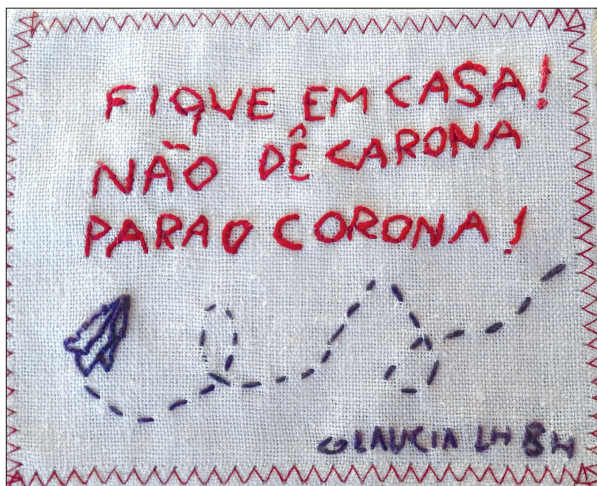 FIQUE EM CASA!
NÃO DÊ CARONA
PARA O CORONA!
GLAUCIA LH BH